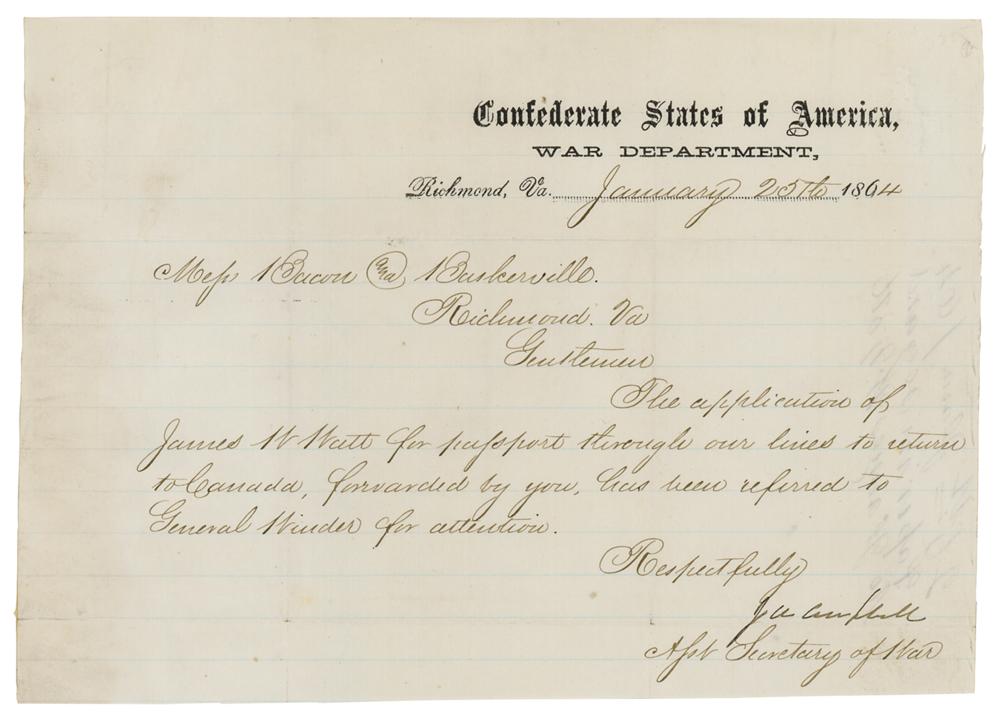 Confederate States of America,
WAR DEPARTMENT,
Richmond, Va. January 25th 1864
Mess Bacon and Baskerville.
Richmond. Va
Gentlemen
The application of
James W Watt for passport through our lines to return
to Canada, forwarded by you, has been referred to
General Winder for attention.
Respectfully
J A Campbell
Asst Secretary of War